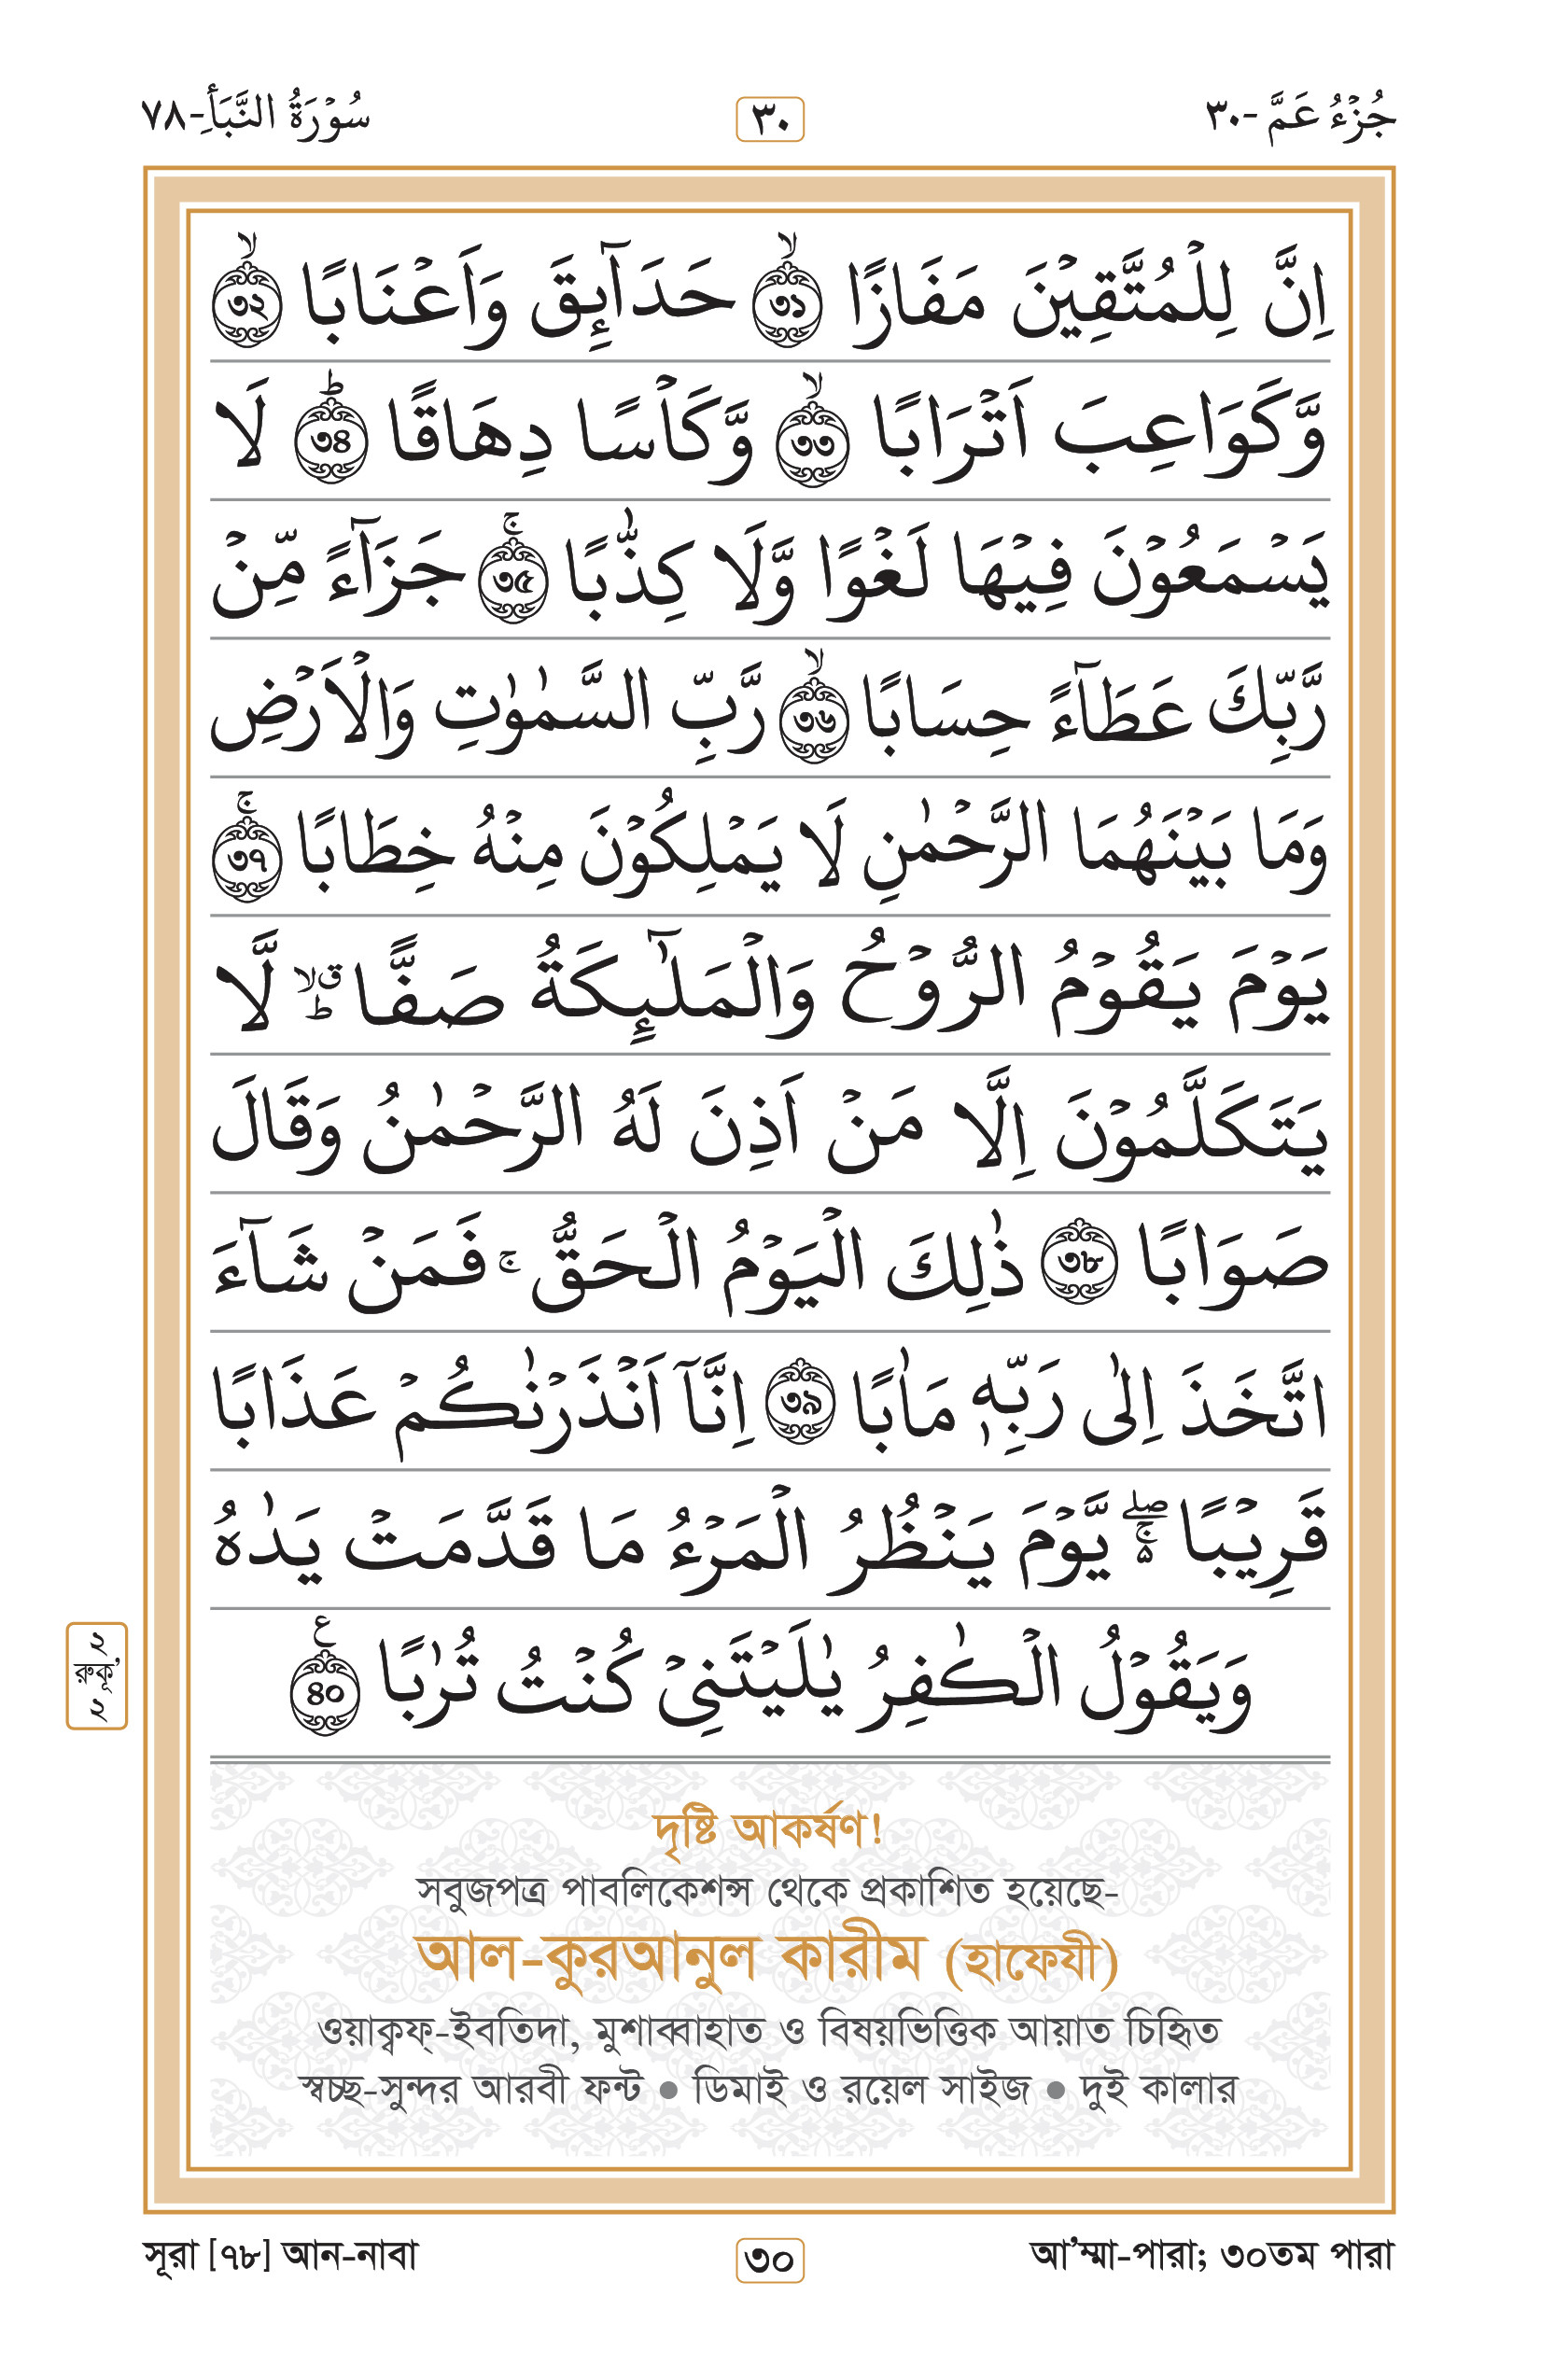 جُزْءُ عَمَّ -٣٠
٣٠
سُوْرَةُ النَّبَأِ-٧٨
اِنَّ لِلْمُتَّقِيْنَ مَفَازًا ۙ﴿৩১﴾ حَدَآىِٕقَ وَاَعْنَابًا ۙ﴿৩২﴾
وَّكَوَاعِبَ اَتْرَابًا ۙ﴿৩৩﴾ وَّكَاْسًا دِهَاقًا ؕ﴿৩৪﴾ لَا
يَسْمَعُوْنَ فِيْهَا لَغْوًا وَّلَا كِذّٰبًا ۚ﴿৩৫﴾ جَزَآءً مِّنْ
رَّبِّكَ عَطَآءً حِسَابًا ۙ﴿৩৬﴾ رَّبِّ السَّمٰوٰتِ وَالْاَرْضِ
وَمَا بَيْنَهُمَا الرَّحْمٰنِ لَا يَمْلِكُوْنَ مِنْهُ خِطَابًا ۚ﴿৩৭﴾
يَوْمَ يَقُوْمُ الرُّوْحُ وَالْمَلٰٓىِٕكَةُ صَفًّا ؕۙق لَّا
يَتَكَلَّمُوْنَ اِلَّا مَنْ اَذِنَ لَهُ الرَّحْمٰنُ وَقَالَ
صَوَابًا ﴿৩৮﴾ ذٰلِكَ الْيَوْمُ الْحَقُّ ۚ فَمَنْ شَآءَ
اتَّخَذَ اِلٰى رَبِّهٖ مَاٰبًا ﴿৩৯﴾ اِنَّآ اَنْذَرْنٰكُمْ عَذَابًا
قَرِيْبًا ۖۚ۵ يَّوْمَ يَنْظُرُ الْمَرْءُ مَا قَدَّمَتْ يَدٰهُ
وَيَقُوْلُ الْكٰفِرُ يٰلَيْتَنِيْ كُنْتُ تُرٰبًا ﴿৪০﴾ ع
২ রুকূ‘ ২
দৃষ্টি আকর্ষণ!
সবুজপত্র পাবলিকেশন্স থেকে প্রকাশিত হয়েছে-
আল-কুরআনুল কারীম (হাফেযী)
ওয়াক্বফ্-ইবতিদা, মুশাব্বাহাত ও বিষয়ভিত্তিক আয়াত চিহ্নিত
স্বচ্ছ-সুন্দর আরবী ফন্ট ● ডিমাই ও রয়েল সাইজ ● দুই কালার
সূরা [৭৮] আন-নাবা
৩০
আ’ম্মা-পারা; ৩০তম পারা